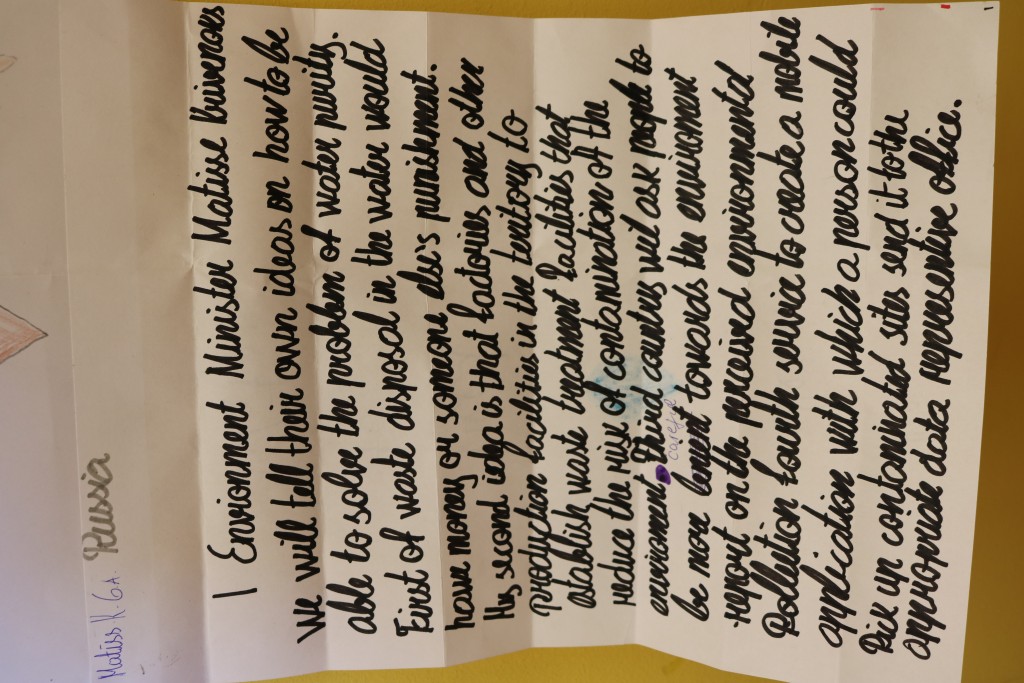 Matīss K. 6A. Russia
I Envionment Minister Matisse briverors
We will tell their own ideas on how to be
able to solve the problem of water purity.
First of waste disposal in the water would
have money or someone else's punishment.
My second idea is that factories and other
Production facilities in the territory to
establish waste treatment facilities that
reduce the risk of contamination of the
environment. Third country wil ask people to
be mor towards the envirioment
careful
report on the perceived environmentd
Pollution fourth service to create a mobile
application with which a person could
Pick up contominated sites send it tothe
appropriate data representive office.